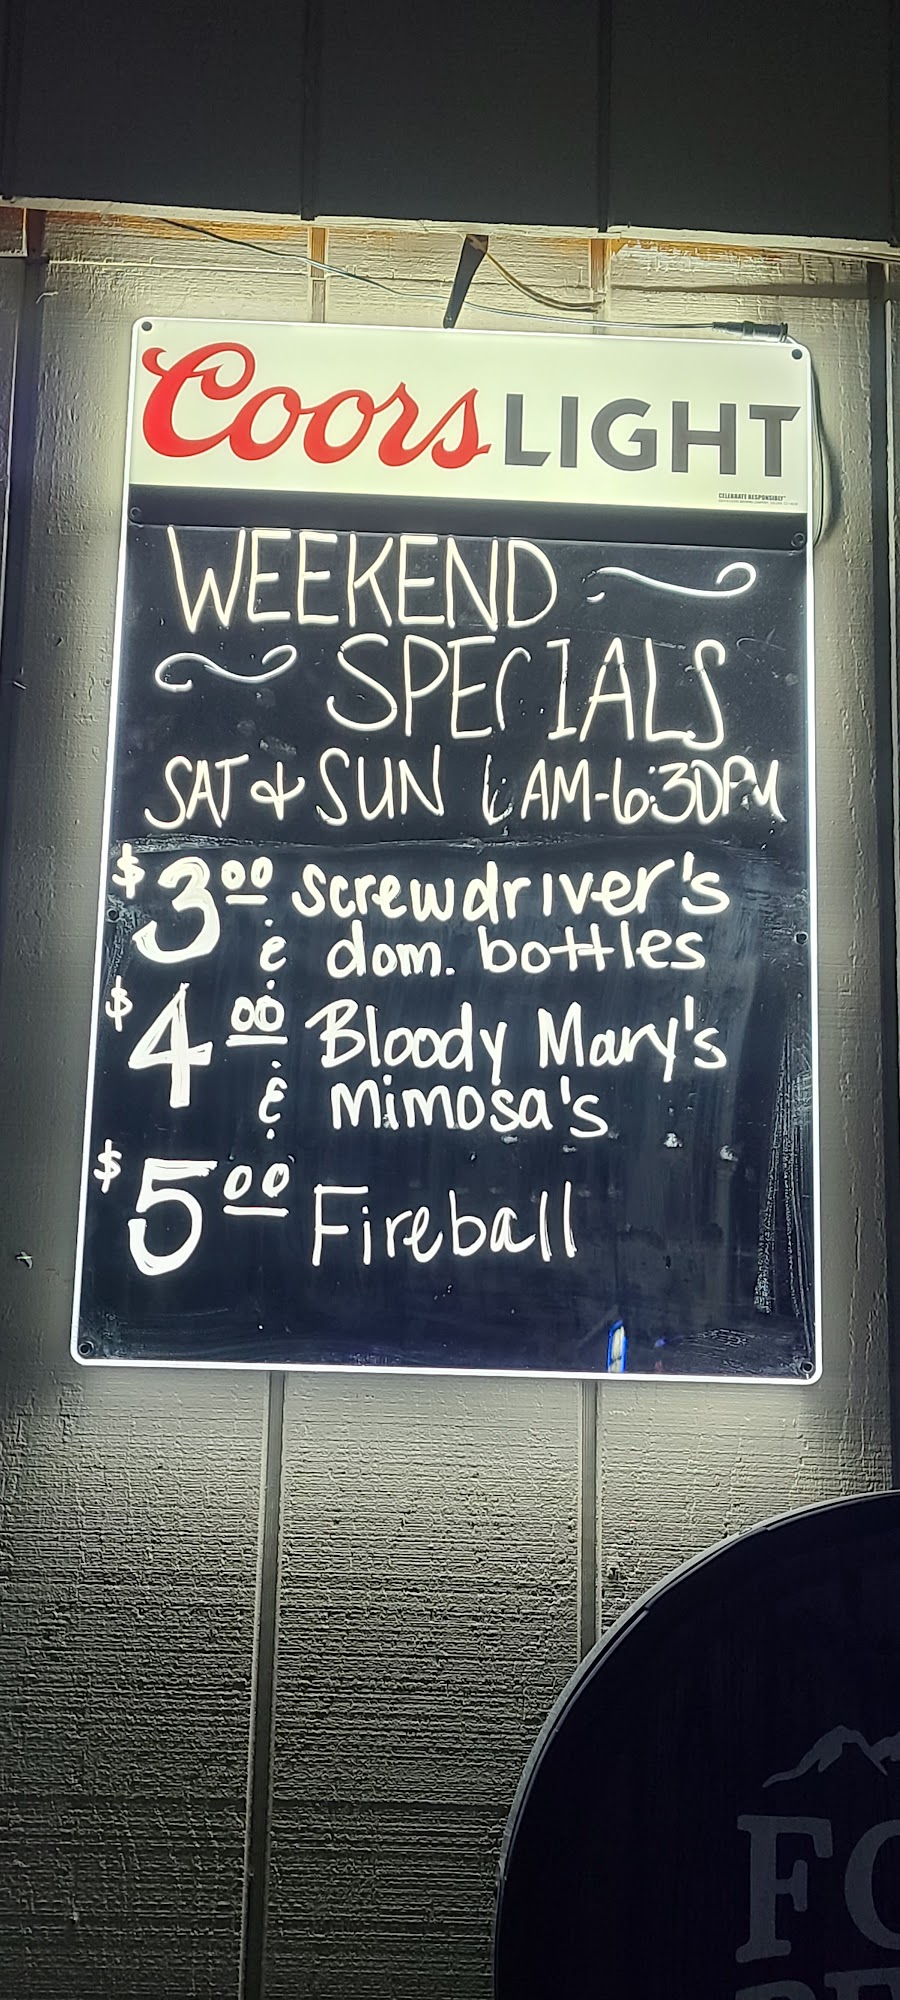 Coors LIGHT
CELEBRATE RESPONSIBLY
WEEKEND
SPECIALS
SAT & SUN AM-6:30PM
$3.00 screwdriver's
& dom. bottles
$4.00 Bloody Mary's
& Mimosa's
$5.00 Fireball